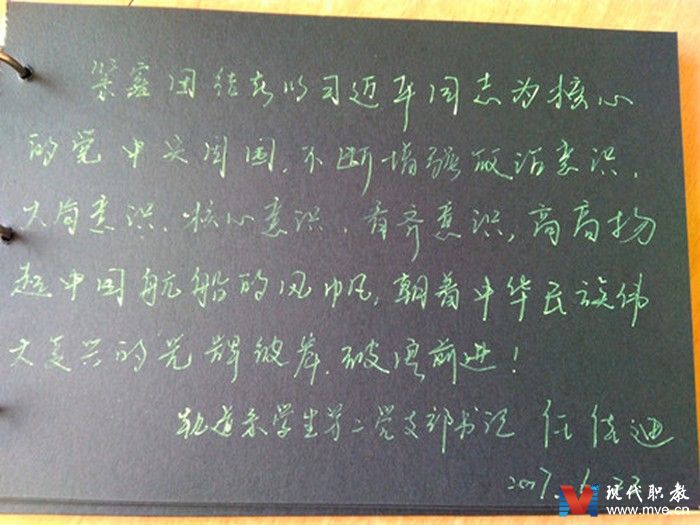 紧密团结在以习近平同志为核心
的党中央周围,不断增强政治意识、
大局意识、核心意识、看齐意识,高高扬
起中国航船的风帆,朝着中华民族伟
大复兴的光辉彼岸,破浪前进!
轨道系学生第二党支部书记 任佳迪
2017.
现代职教
www.mve.cn